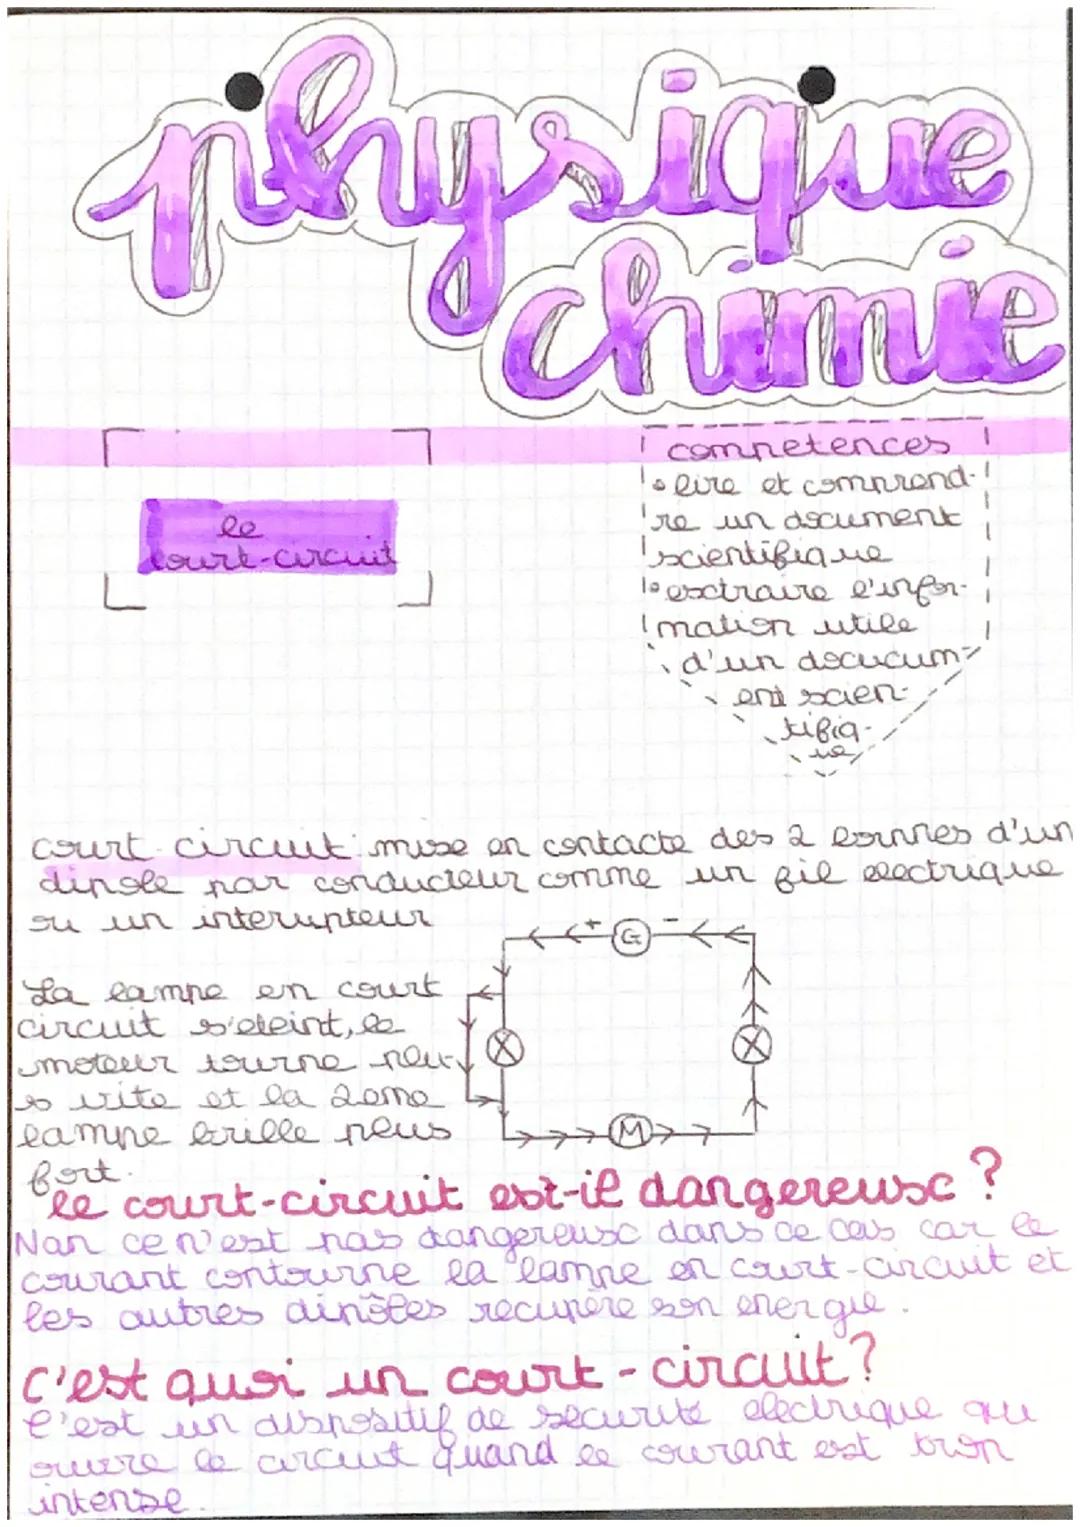 physique
chimie
le
court-circuit
competences
• lire et comprend-
re un document
scientifique
• extraire l'infor-
mation utile
d'un docucum-
ent scien-
tifiq-
ue
court-circuit: mise en contacte des 2 bornes d'un
dipole par conducteur comme un fil electrique
ou un interupteur
+ G -
La lampe en court
circuit s'eteint, le
moteur tourne plu-
s vite et la 2eme
lampe brille plus
fort.
M
le court-circuit est-il dangereuse ?
Nan ce n'est pas dangereuse dans ce cas car le
courant contourne la lampe en court-circuit et
les autres dipôles récupère son energie.
C'est quoi un court-circuit ?
C'est un dispositif de securité electrique qui
ouvre le circuit quand le courant est trop
intense.